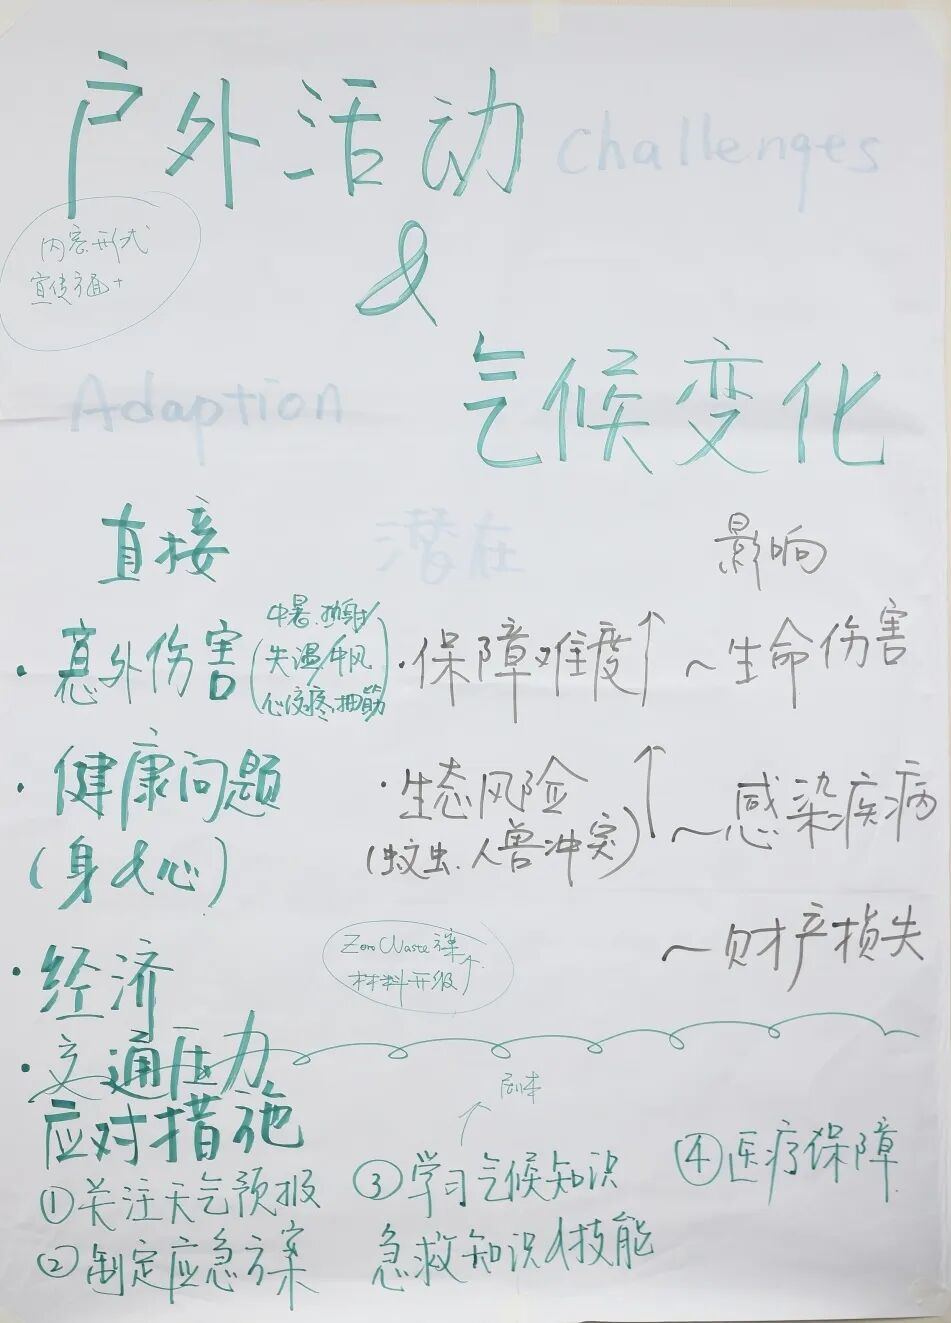 户外活动 Challenges
&
内容形式
宣传
Adaption
气候变化
直接 潜在 影响
· 意外伤害 (中暑、
失温/中风
心绞疼、抽筋)
· 保障难度↑
~生命伤害
· 健康问题
(身&心)
· 生态风险↑
(蚊虫、人兽冲突)
~感染疾病
~财产损失
· 经济
Zero Waste
材料升级
· 交通压力
应对措施
剧本
①关注天气预报
②制定应急方案
③学习气候知识
急救知识&技能
④医疗保障